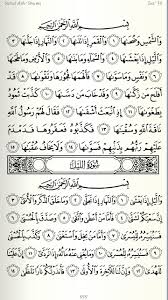 Surah Ash-Shams Juz' 30
بِسْمِ ٱللَّهِ ٱلرَّحْمَٰنِ ٱلرَّحِيمِ
وَٱلشَّمْسِ وَضُحَىٰهَا ١ وَٱلْقَمَرِ إِذَا تَلَىٰهَا ٢ وَٱلنَّهَارِ إِذَا جَلَّىٰهَا ٣
وَٱلَّيْلِ إِذَا يَغْشَىٰهَا ٤ وَٱلسَّمَآءِ وَمَا بَنَىٰهَا ٥ وَٱلْأَرْضِ وَمَا طَحَىٰهَا ٦
وَنَفْسٍ وَمَا سَوَّىٰهَا ٧ فَأَلْهَمَهَا فُجُورَهَا وَتَقْوَىٰهَا ٨ قَدْ
أَفْلَحَ مَن زَكَّىٰهَا ٩ وَقَدْ خَابَ مَن دَسَّىٰهَا ١٠ كَذَّبَتْ ثَمُودُ
بِطَغْوَىٰهَآ ١١ إِذِ ٱنۢبَعَثَ أَشْقَىٰهَا ١٢ فَقَالَ لَهُمْ رَسُولُ ٱللَّهِ
نَاقَةَ ٱللَّهِ وَسُقْيَٰهَا ١٣ فَكَذَّبُوهُ فَعَقَرُوهَا فَدَمْدَمَ عَلَيْهِمْ
رَبُّهُم بِذَنۢبِهِمْ فَسَوَّىٰهَا ١٤ وَلَا يَخَافُ عُقْبَٰهَا ١٥
سُورَةُ اللَّيْلِ
بِسْمِ ٱللَّهِ ٱلرَّحْمَٰنِ ٱلرَّحِيمِ
وَٱلَّيْلِ إِذَا يَغْشَىٰ ١ وَٱلنَّهَارِ إِذَا تَجَلَّىٰ ٢ وَمَا خَلَقَ ٱلذَّكَرَ وَٱلْأُنثَىٰٓ ٣
إِنَّ سَعْيَكُمْ لَشَتَّىٰ ٤ فَأَمَّا مَنْ أَعْطَىٰ وَٱتَّقَىٰ ٥ وَصَدَّقَ بِٱلْحُسْنَىٰ ٦
فَسَنُيَسِّرُهُۥ لِلْيُسْرَىٰ ٧ وَأَمَّا مَنۢ بَخِلَ وَٱسْتَغْنَىٰ ٨ وَكَذَّبَ بِٱلْحُسْنَىٰ ٩
فَسَنُيَسِّرُهُۥ لِلْعُسْرَىٰ ١٠ وَمَا يُغْنِى عَنْهُ مَالُهُۥٓ إِذَا تَرَدَّىٰٓ ١١ إِنَّ عَلَيْنَا
لَلْهُدَىٰ ١٢ وَإِنَّ لَنَا لَلْءَاخِرَةَ وَٱلْأُولَىٰ ١٣ فَأَنذَرْتُكُمْ نَارًا تَلَظَّىٰ ١٤
595